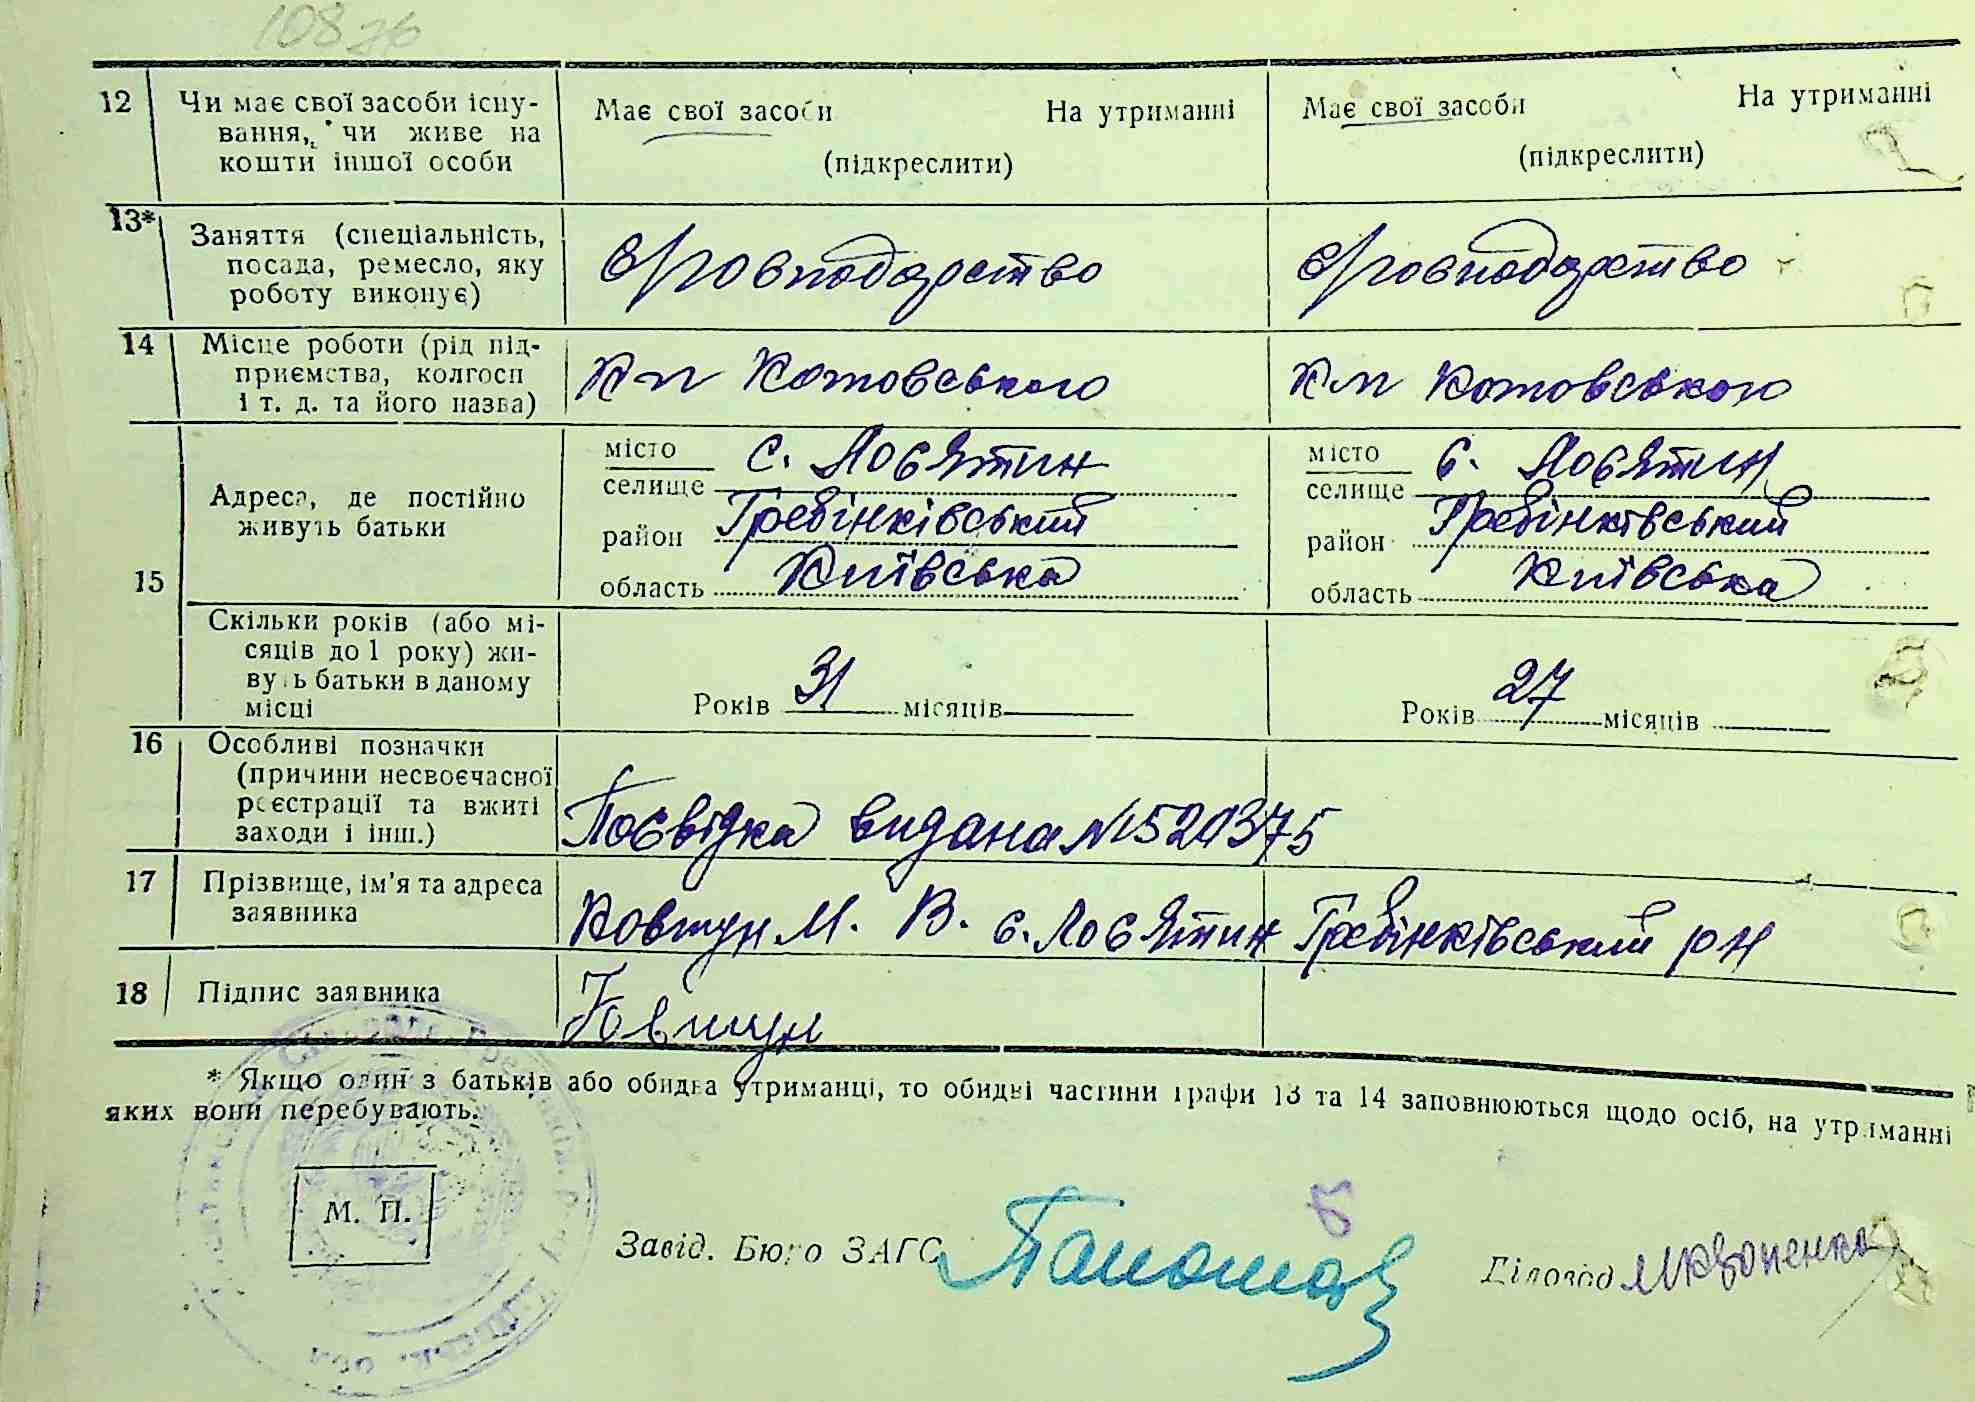 108 зв
12 Чи має свої засоби існу- Має свої засоби На утриманні Має свої засоби На утриманні
вання, чи живе на
кошти іншої особи (підкреслити) (підкреслити)
13* Заняття (спеціальність,
посада, ремесло, яку
роботу виконує)
14 Місце роботи (рід під-
приємства, колгосп Котовського Котовського
і т. д. та його назва)
15 Адреса, де постійно
живуть батьки
місто с.
селище
район Гребінківський
область Київська
місто с.
селище
район Гребінківський
область Київська
Скільки років (або мі-
сяців до 1 року) жи-
вуть батьки в даному
місці
Років 31 місяців Років 27 місяців
16 Особливі позначки
(причини несвоєчасної
реєстрації та вжиті
заходи і інш.) Посвідка видана №520375
17 Прізвище, ім'я та адреса
заявника Ковтун М. В. с. Гребінківський рн
18 Підпис заявника Ковтун
* Якщо один з батьків або обидва утриманці, то обидві частини графи 13 та 14 заповнюються щодо осіб, на утриманні
яких вони перебувають.
М. П.
Завід. Бюро ЗАГС
Діловод